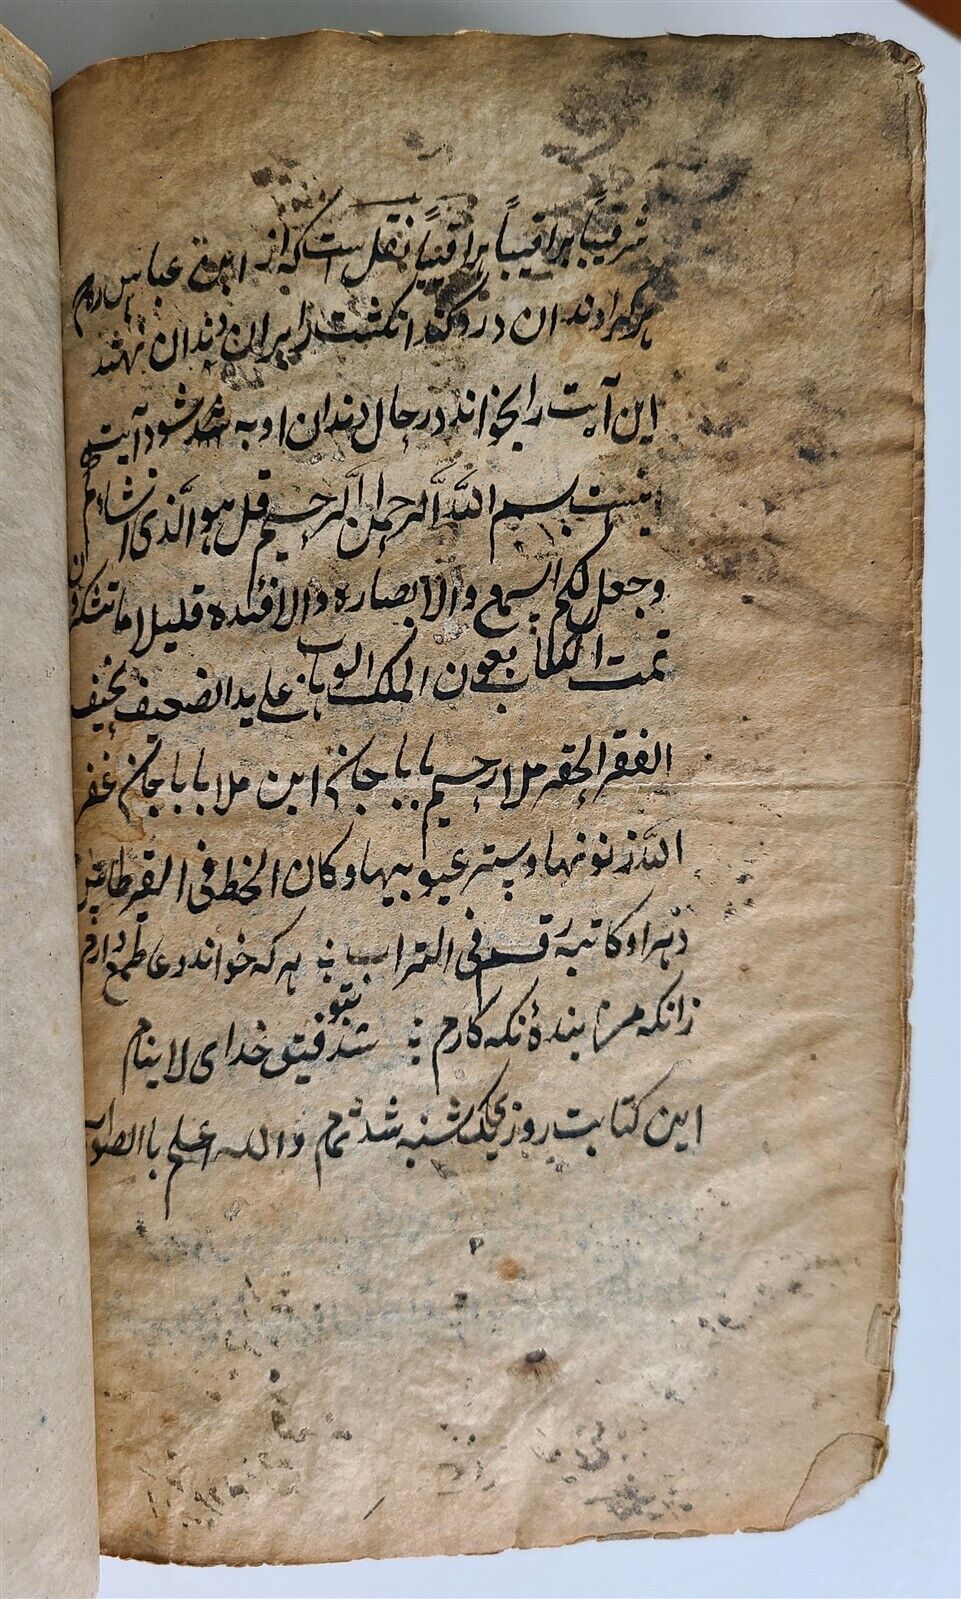 شرقیباً براقیباً براقیباً نقل است که از ابن عباس رض
هرکرا دندان درد کند انکشت را بران دندان نهند
این آیت را بخواند در حال دندان او به شد شود آیت
اینست بسم الله الرحمن الرحیم قل هو الذی انشاءکم
وجعل لکم السمع والابصاره والافئده قلیلا ما تشکرون
تمت الکتاب بعون الملک الوهاب علی ید الضعیف نحیف
الفقر الحقر ملا رحیم بابا جان ابن ملا بابا جان غفر
الله زنونها وستر عیوبیها وکان الخط فی القرطاس
دهرا وکاتبه رقیم فی التراب هر که خواند دعا طمع دارم
زانکه من بندهٔ نکه کارم شد بتوفیق خدای لاینام
این کتابت روز یکشنبه شد تمم والله اعلم باالصواب